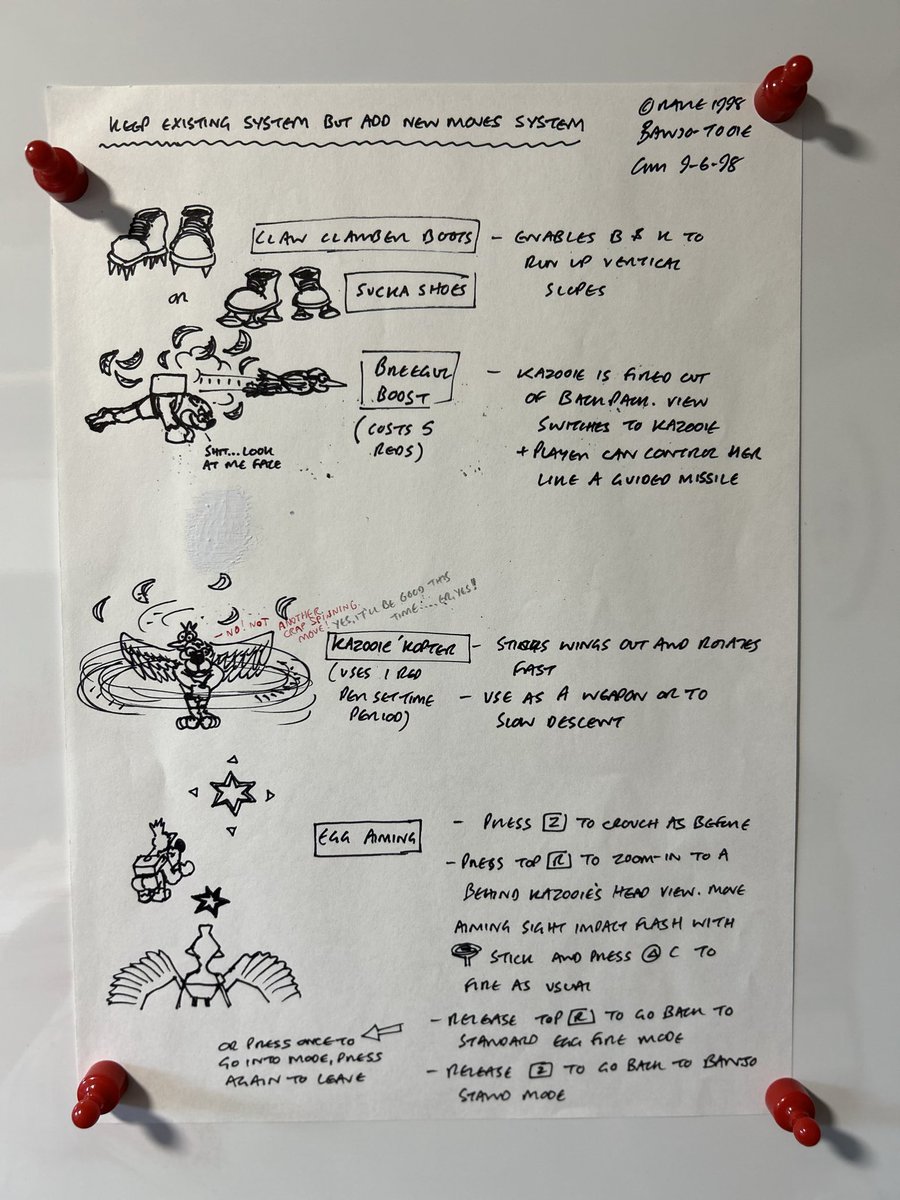 KEEP EXISTING SYSTEM BUT ADD NEW MOVES SYSTEM
© RARE 1998
BANJO-TOOIE
9-6-98
CLAW CLAMBER BOOTS
- ENABLES B & K TO
RUN UP VERTICAL
SLOPES
OR
SUCKA SHOES
BREEGUL
BOOST
(COSTS 5
REDS)
- KAZOOIE IS FIRED OUT
OF BACKPACK. VIEW
SWITCHES TO KAZOOIE
+ PLAYER CAN CONTROL HER
LIKE A GUIDED MISSILE
SHIT...LOOK
AT ME FACE
- NO! NOT ANOTHER
CRAP SPINNING
MOVE!
YES, IT'LL BE GOOD THIS
TIME....ER, YES!!
KAZOOIE 'KOPTER
(USES 1 RED
PER SET TIME
PERIOD)
- WINGS OUT AND ROTATES
FAST
- USE AS A WEAPON OR TO
SLOW DESCENT
EGG AIMING
- PRESS Z TO CROUCH AS BEFORE
- PRESS TOP R TO ZOOM-IN TO A
BEHIND KAZOOIE'S HEAD VIEW. MOVE
AIMING SIGHT IMPACT FLASH WITH
STICK AND PRESS C TO
FIRE AS USUAL
- RELEASE TOP R TO GO BACK TO
STANDARD EGG FIRE MODE
- RELEASE Z TO GO BACK TO BANJO
STAND MODE
OR PRESS ONCE TO
GO INTO MODE, PRESS
AGAIN TO LEAVE